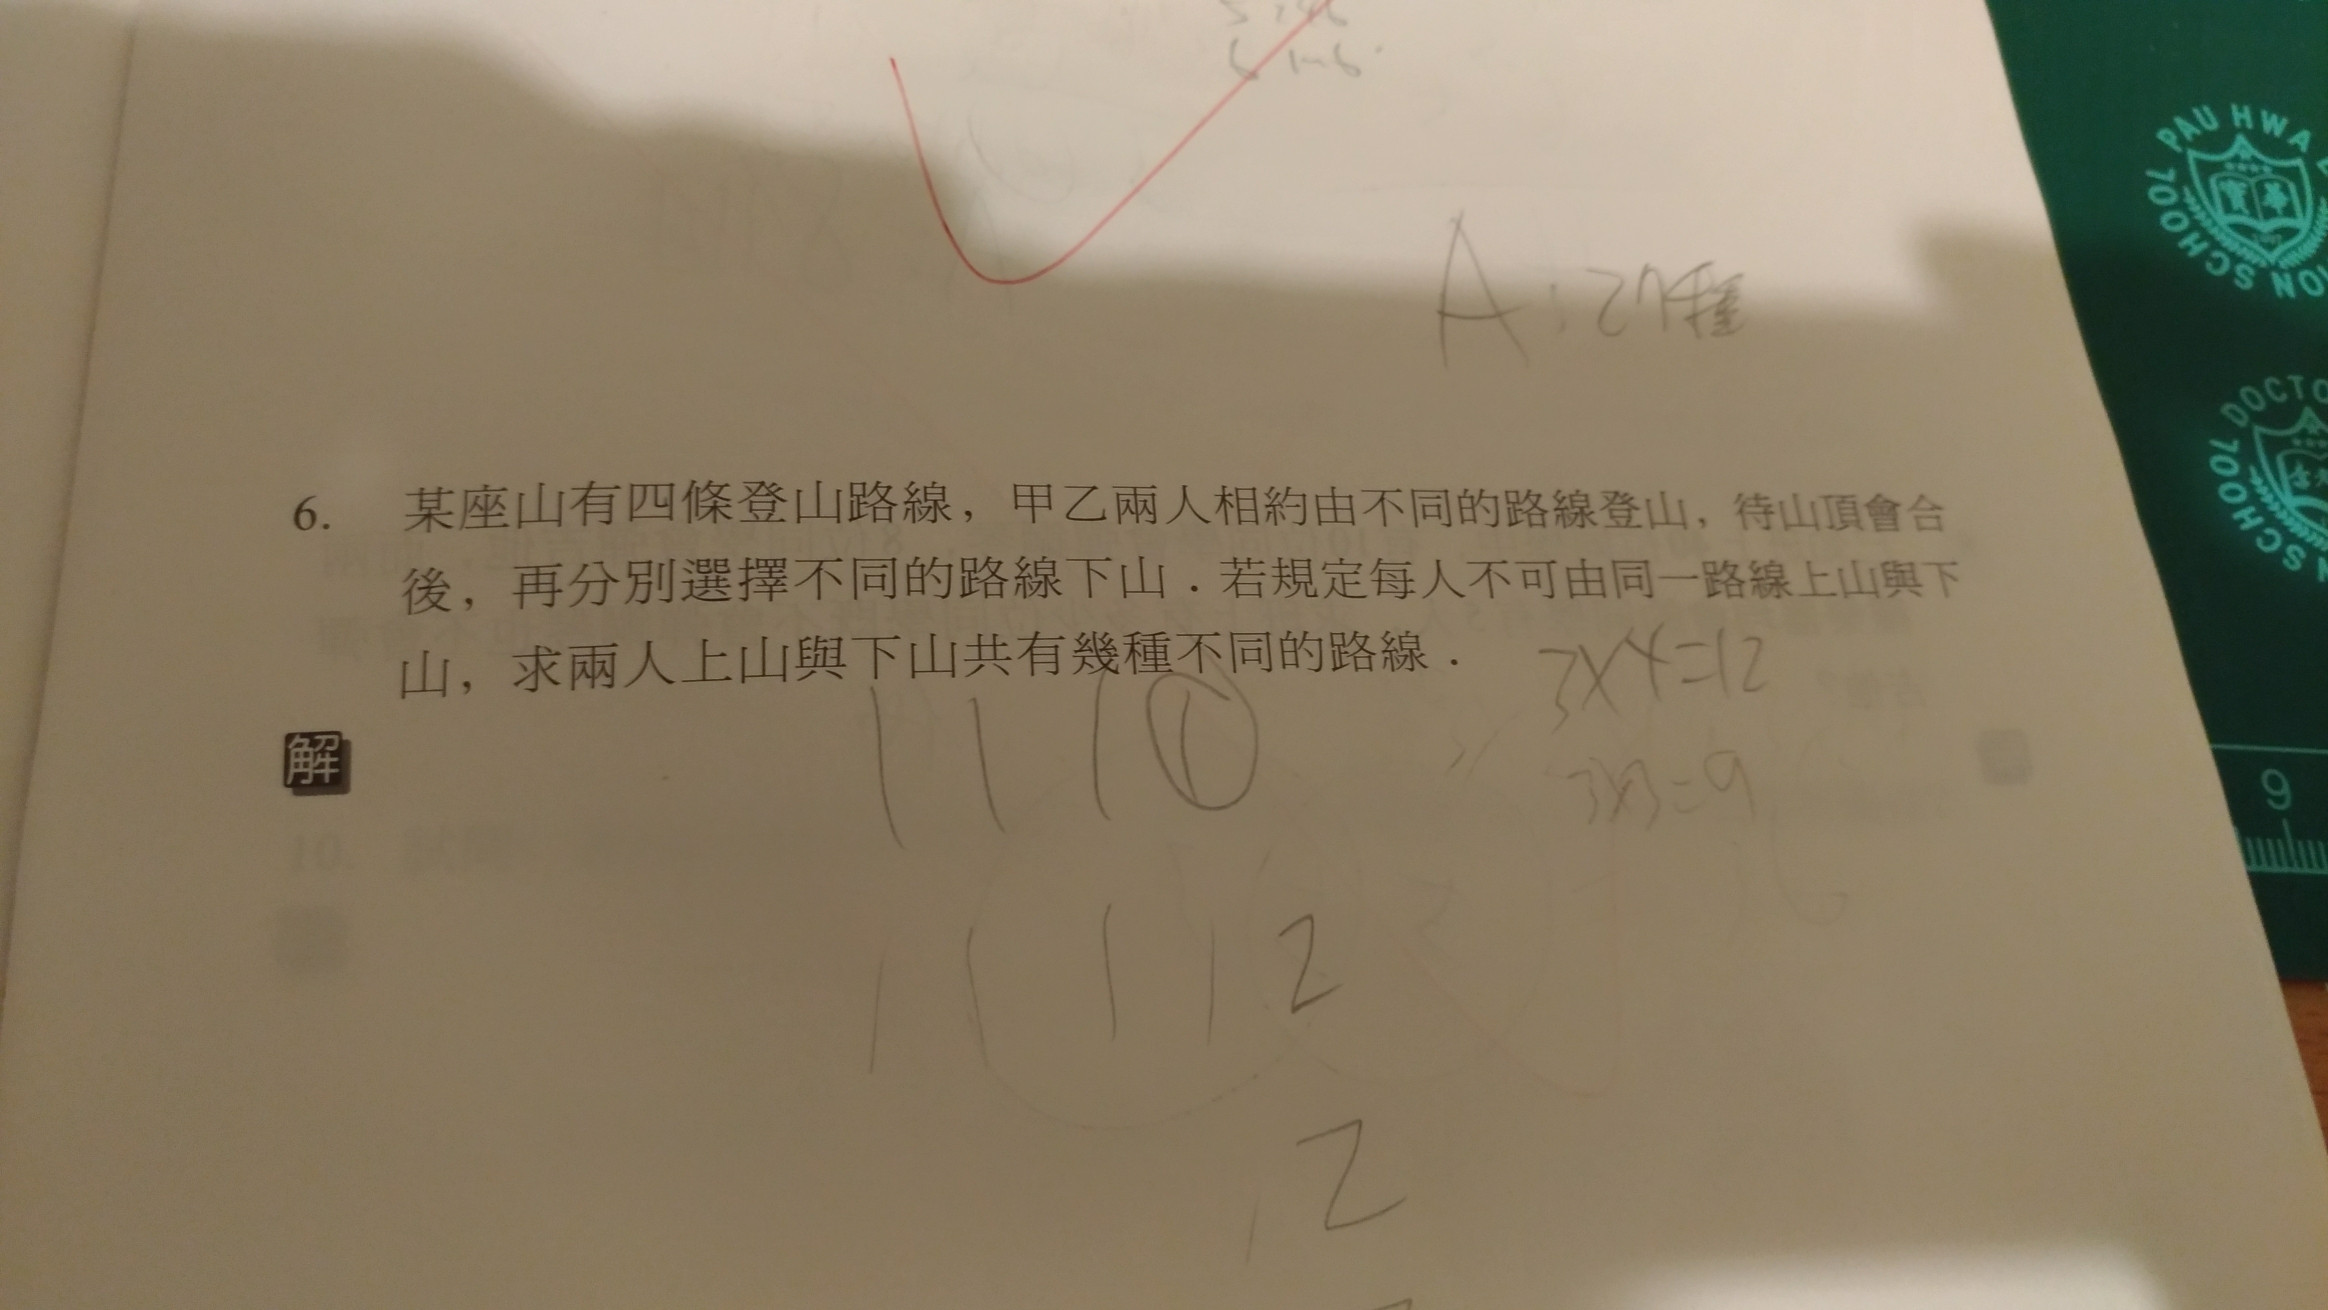 A:27種
6. 某座山有四條登山路線，甲乙兩人相約由不同的路線登山，待山頂會合
後，再分別選擇不同的路線下山．若規定每人不可由同一路線上山與下
山，求兩人上山與下山共有幾種不同的路線．
3×4=12
3×3=9
解
1 1 1 ①
1 1 1 1 2
2
PAU HWA
ION SCHOOL
寶華
DOCTO
SCHOOL
9
10.